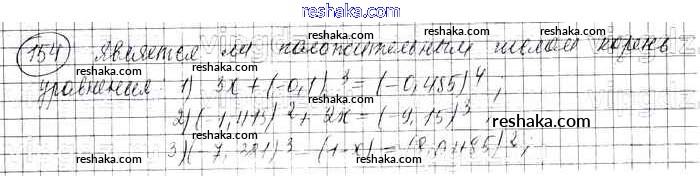 reshaka.com
154 Является ли положительным числом корень
reshaka.com reshaka.com
уравнения 1) 3x + (-0,1)³ = (-0,485)⁴;
reshaka.com reshaka.com
2) (-1,415)² + 2x = (-9,15)³
reshaka.com reshaka.com
3) (-7, )³ - (1-x) = ( )²;
reshaka.com reshaka.com